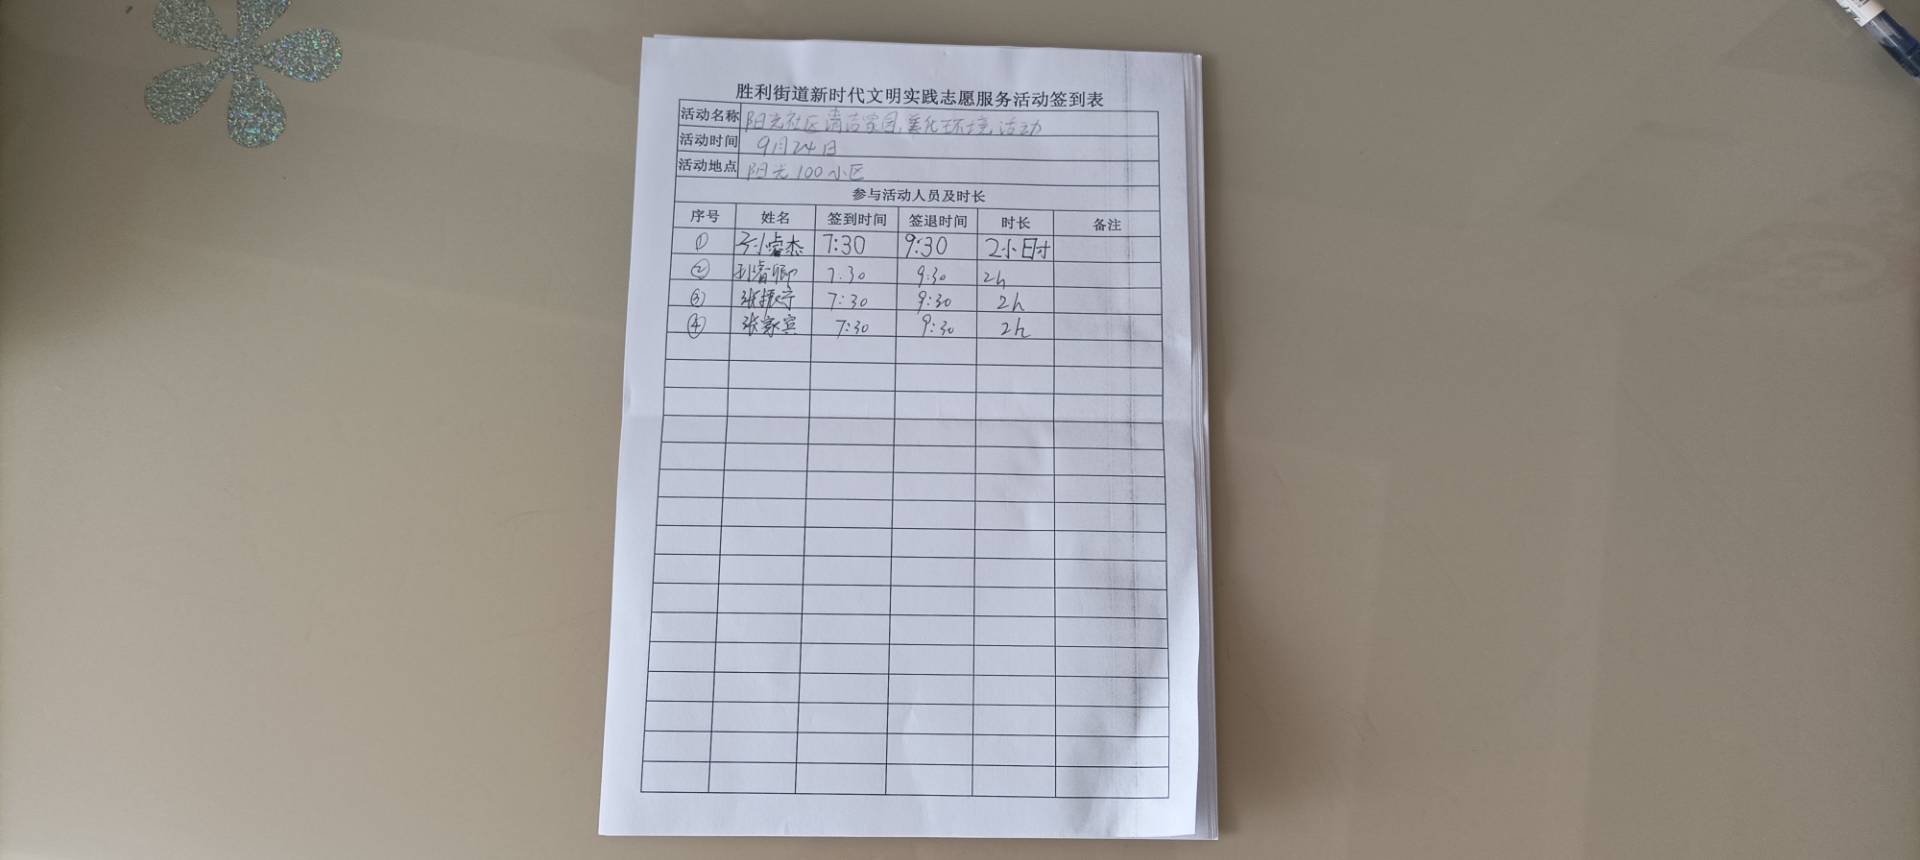 胜利街道新时代文明实践志愿服务活动签到表
活动名称 阳光社区清洁家园,美化环境,活动
活动时间 9月24日
活动地点 阳光100小区
参与活动人员及时长
序号 姓名 签到时间 签退时间 时长 备注
① 7:30 9:30 2小时
② 7:30 9:30 2h
③ 张振宇 7:30 9:30 2h
④ 张家宾 7:30 9:30 2h